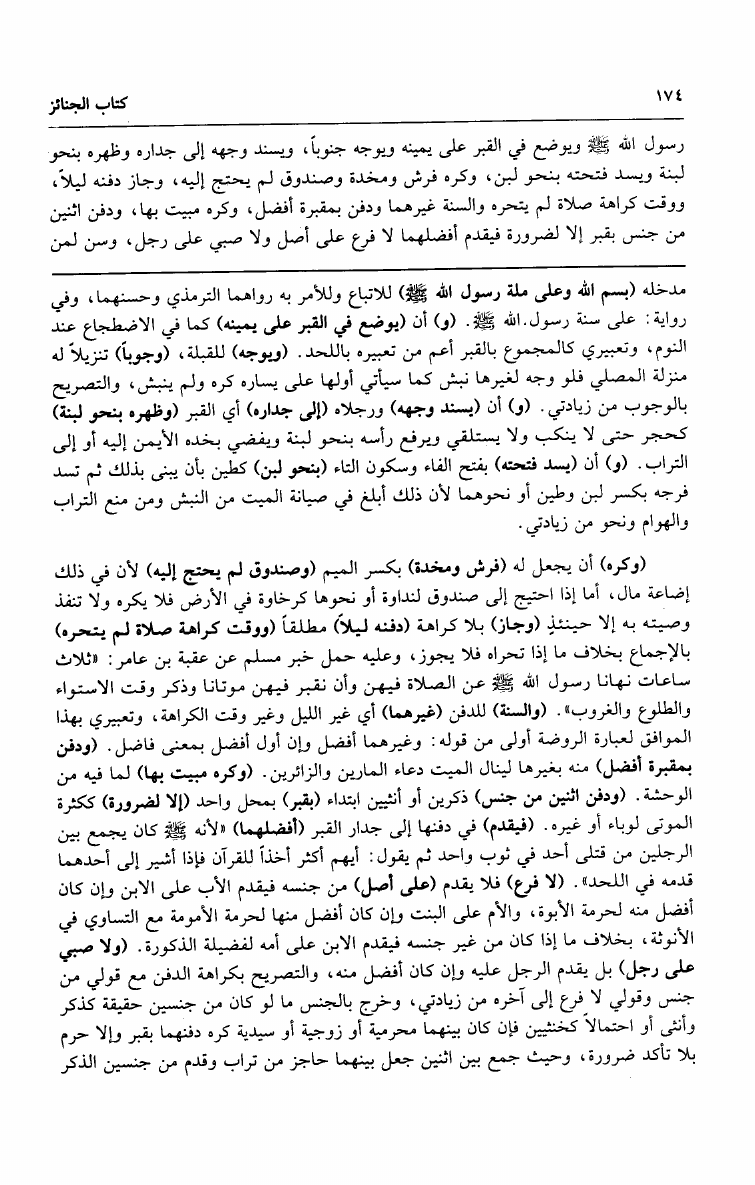 ١٧٤
كتاب الجنائز
رسول الله ﷺ ويوضع في القبر على يمينه ويوجه جنوباً، ويسند وجهه إلى جداره وظهره بنحو
لبنة ويسد فتحته بنحو لبن، وكره فرش ومخدة وصندوق لم يحتج إليه، وجاز دفنه ليلاً،
ووقت كراهة صلاة لم يتحره والسنة غيرهما ودفن بمقبرة أفضل، وكره مبيت بها، ودفن اثنين
من جنس بقبر إلا لضرورة فيقدم أفضلهما لا فرع على أصل ولا صبي على رجل، وسن لمن
مدخله (بسم الله وعلى ملة رسول الله ﷺ) للاتباع وللأمر به رواهما الترمذي وحسنهما، وفي
رواية: على سنة رسول.الله ﷺ. (و) أن (يوضع في القبر على يمينه) كما في الاضطجاع عند
النوم، وتعبيري كالمجموع بالقبر أعم من تعبيره باللحد. (ويوجه) للقبلة، (وجوباً) تنزيلاً له
منزلة المصلي فلو وجه لغيرها نبش كما سيأتي أولها على يساره كره ولم ينبش، والتصريح
بالوجوب من زيادتي. (و) أن (يسند وجهه) ورجلاه (إلى جداره) أي القبر (وظهره بنحو لبنة)
كحجر حتى لا ينكب ولا يستلقي ويرفع رأسه بنحو لبنة ويفضي بخده الأيمن إليه أو إلى
التراب. (و) أن (يسد فتحته) بفتح الفاء وسكون التاء (بنحو لبن) كطين بأن يبنى بذلك ثم تسد
فرجه بكسر لبن وطين أو نحوهما لأن ذلك أبلغ في صيانة الميت من النبش ومن منع التراب
والهوام ونحو من زيادتي.
(وكره) أن يجعل له (فرش ومخدة) بكسر الميم (وصندوق لم يحتج إليه) لأن في ذلك
إضاعة مال، أما إذا احتيج إلى صندوق لنداوة أو نحوها كرخاوة في الأرض فلا يكره ولا تنفذ
وصيته به إلا حينئذٍ (وجاز) بلا كراهة (دفنه ليلاً) مطلقاً (ووقت كراهة صلاة لم يتحره)
بالإجماع بخلاف ما إذا تحراه فلا يجوز، وعليه حمل خبر مسلم عن عقبة بن عامر: «ثلاث
ساعات نهانا رسول الله ﷺ عن الصلاة فيهن وأن نقبر فيهن موتانا وذكر وقت الاستواء
والطلوع والغروب». (والسنة) للدفن (غيرهما) أي غير الليل وغير وقت الكراهة، وتعبيري بهذا
الموافق لعبارة الروضة أولى من قوله: وغيرهما أفضل وإن أول أفضل بمعنى فاضل. (ودفن
بمقبرة أفضل) منه بغيرها لينال الميت دعاء المارين والزائرين. (وكره مبيت بها) لما فيه من
الوحشة. (ودفن اثنين من جنس) ذكرين أو أنثيين ابتداء (بقبر) بمحل واحد (إلا لضرورة) ككثرة
الموتى لوباء أو غيره. (فيقدم) في دفنها إلى جدار القبر (أفضلهما) «لأنه ﷺ كان يجمع بين
الرجلين من قتلى أحد في ثوب واحد ثم يقول: أيهم أكثر أخذاً للقرآن فإذا أشير إلى أحدهما
قدمه في اللحد». (لا فرع) فلا يقدم (على أصل) من جنسه فيقدم الأب على الابن وإن كان
أفضل منه لحرمة الأبوة، والأم على البنت وإن كان أفضل منها لحرمة الأمومة مع التساوي في
الأنوثة، بخلاف ما إذا كان من غير جنسه فيقدم الابن على أمه لفضيلة الذكورة. (ولا صبي
على رجل) بل يقدم الرجل عليه وإن كان أفضل منه، والتصريح بكراهة الدفن مع قولي من
جنس وقولي لا فرع إلى آخره من زيادتي، وخرج بالجنس ما لو كان من جنسين حقيقة كذكر
وأنثى أو احتمالاً كخنثيين فإن كان بينهما محرمية أو زوجية أو سيدية كره دفنهما بقبر وإلا حرم
بلا تأكد ضرورة، وحيث جمع بين اثنين جعل بينهما حاجز من تراب وقدم من جنسين الذكر